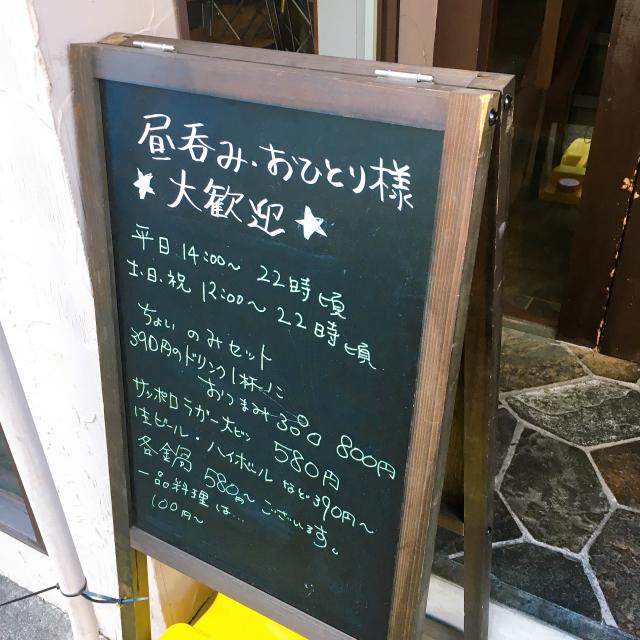 昼呑み・おひとり様
★大歓迎★
平日 14:00〜 22時頃
土・日・祝 12:00〜22時頃
ちょい のみセット
390円のドリンク1杯に
おつまみ3コ 800円
サッポロラガー大ビン 580円
生ビール・ハイボール など390円〜
各鍋 580円〜ございます。
一品料理は…
100円〜